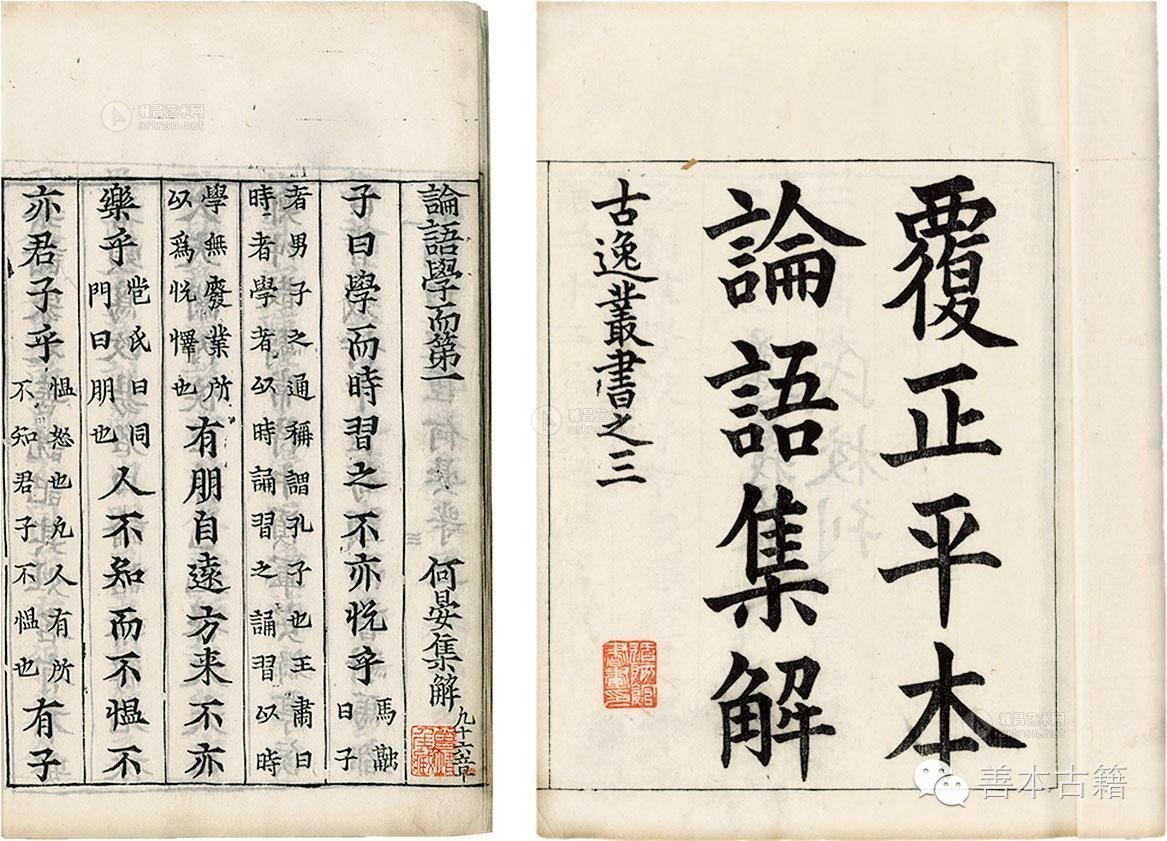 覆正平本
論語集解
古逸叢書之三
論語學而第一 何晏集解 凡十六章
子曰學而時習之不亦悦乎 馬融
曰子
者男子之通稱謂孔子也王肅曰
時者學者以時誦習之誦習以時
學無廢業所
以爲悦懌也
有朋自遠方来不亦
樂乎
苞氏曰同
門曰朋也
人不知而不愠不
亦君子乎
愠怒也凡人有所
不知君子不愠也
有子
雅昌艺术网
artron.net
雅昌艺术网
artron.net
雅昌艺术网
artron.net
善本古籍